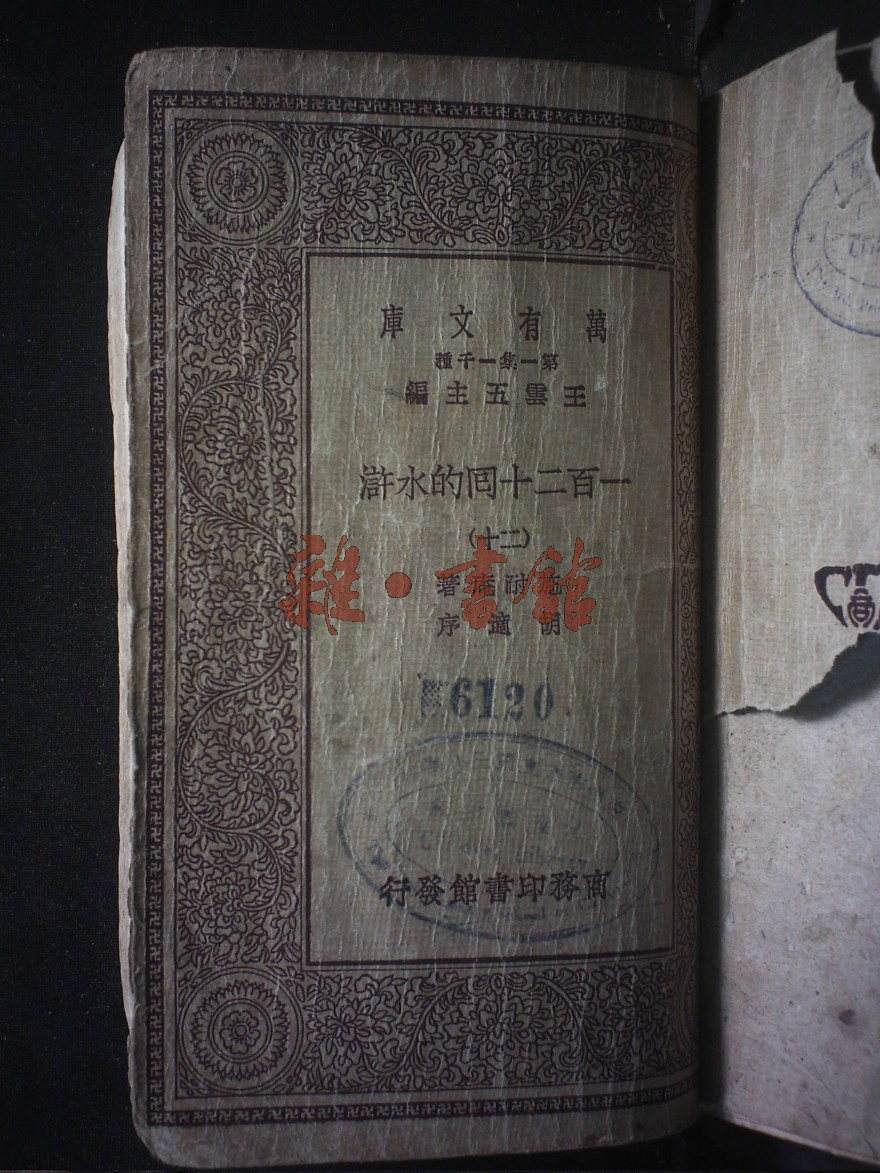 萬有文庫
第一集一千種
王雲五主編
一百二十回的水滸
(二十)
施耐庵著
胡適序
雜·書館
6120.
商務印書館發行
Library